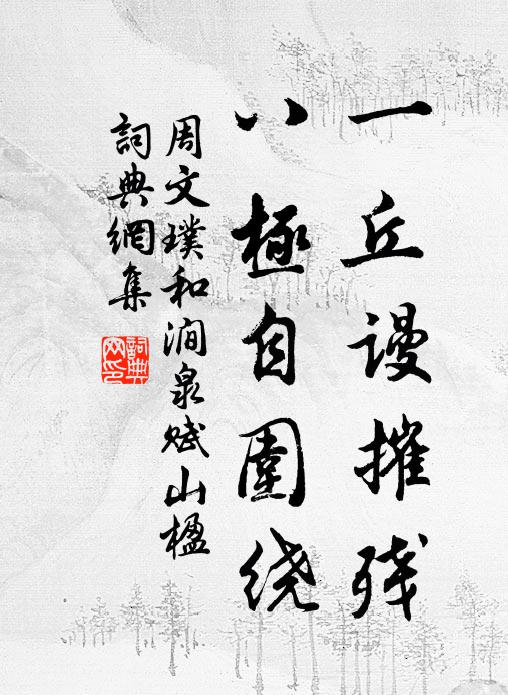 一丘谩摧残
八極自圍绕
周文璞和澗泉赋山楹
詞典網集
詞典
网印